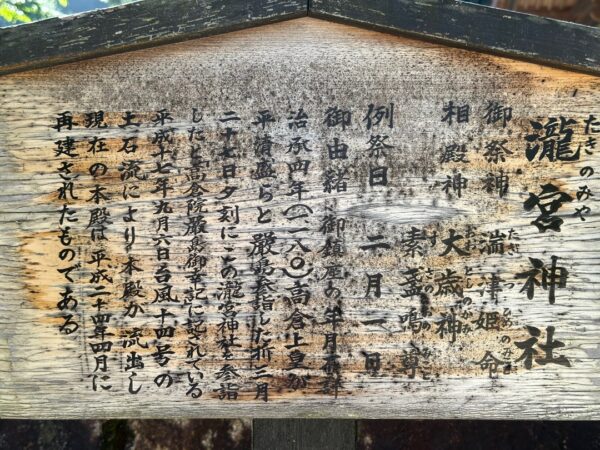 瀧宮神社
たきのみや
御祭神 湍津姫命
たぎつひめのみこと
相殿神 大歳神
おおとしのかみ
素盞嗚尊
すさのおのみこと
例祭日 二月一日
御由緒 御鎮座の年月不詳
治承四年(一一八〇)高倉上皇が
平清盛らと厳島参詣した折三月
二十七日夕刻にこの瀧宮神社も参詣
したと高倉院厳島御幸記に記されている
平成十七年九月六日台風十四号の
土石流により本殿が流出し
現在の本殿は平成二十四年四月に
再建されたものである